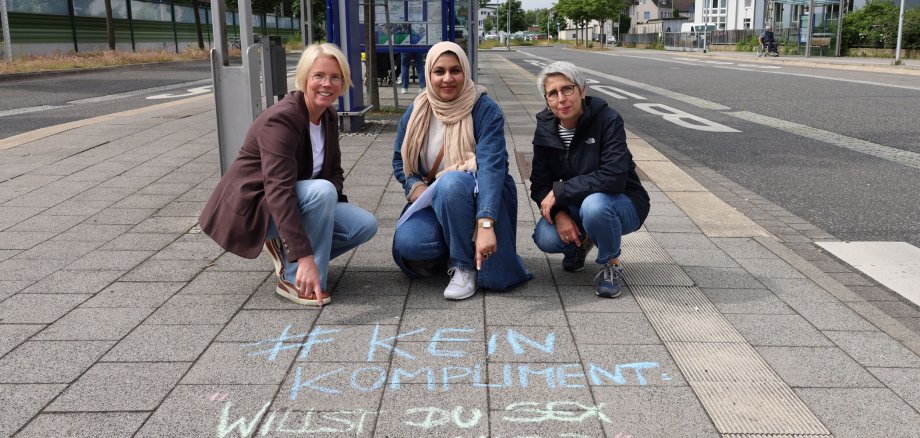 # KEIN
KOMPLIMENT:
"WILLST DU SEX